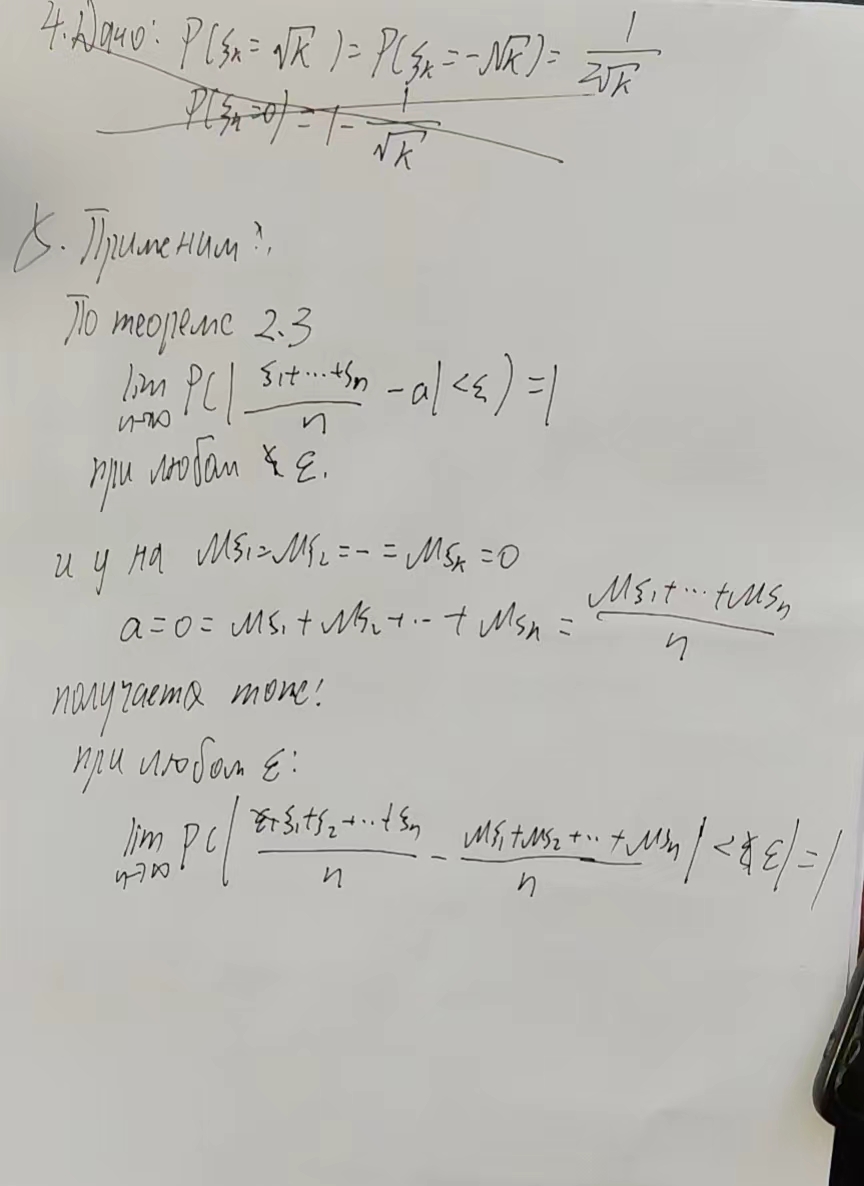 4. Дано: P(ξₖ = √k) = P(ξₖ = -√k) = 1/(2√k)
P(ξₙ = 0) = 1 - 1/√k
5. Применим:
По теореме 2.3
lim n→∞ P(| (ξ₁+...+ξₙ)/n - a| < ε) = 1
при любом ε.
и у на Mξ₁ = Mξ₂ = - = Mξₖ = 0
a = 0 = Mξ₁ + Mξ₂ + ... + Mξₙ = (Mξ₁+...+Mξₙ)/n
получается тоже:
при любом ε:
lim n→∞ P(| (ξ₁+ξ₂+...+ξₙ)/n - (Mξ₁+Mξ₂+...+Mξₙ)/n | < ε| = 1